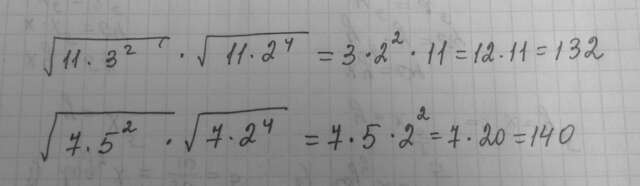 √(11 · 3²) · √(11 · 2⁴) = 3 · 2² · 11 = 12 · 11 = 132
√(7 · 5²) · √(7 · 2⁴) = 7 · 5 · 2² = 7 · 20 = 140